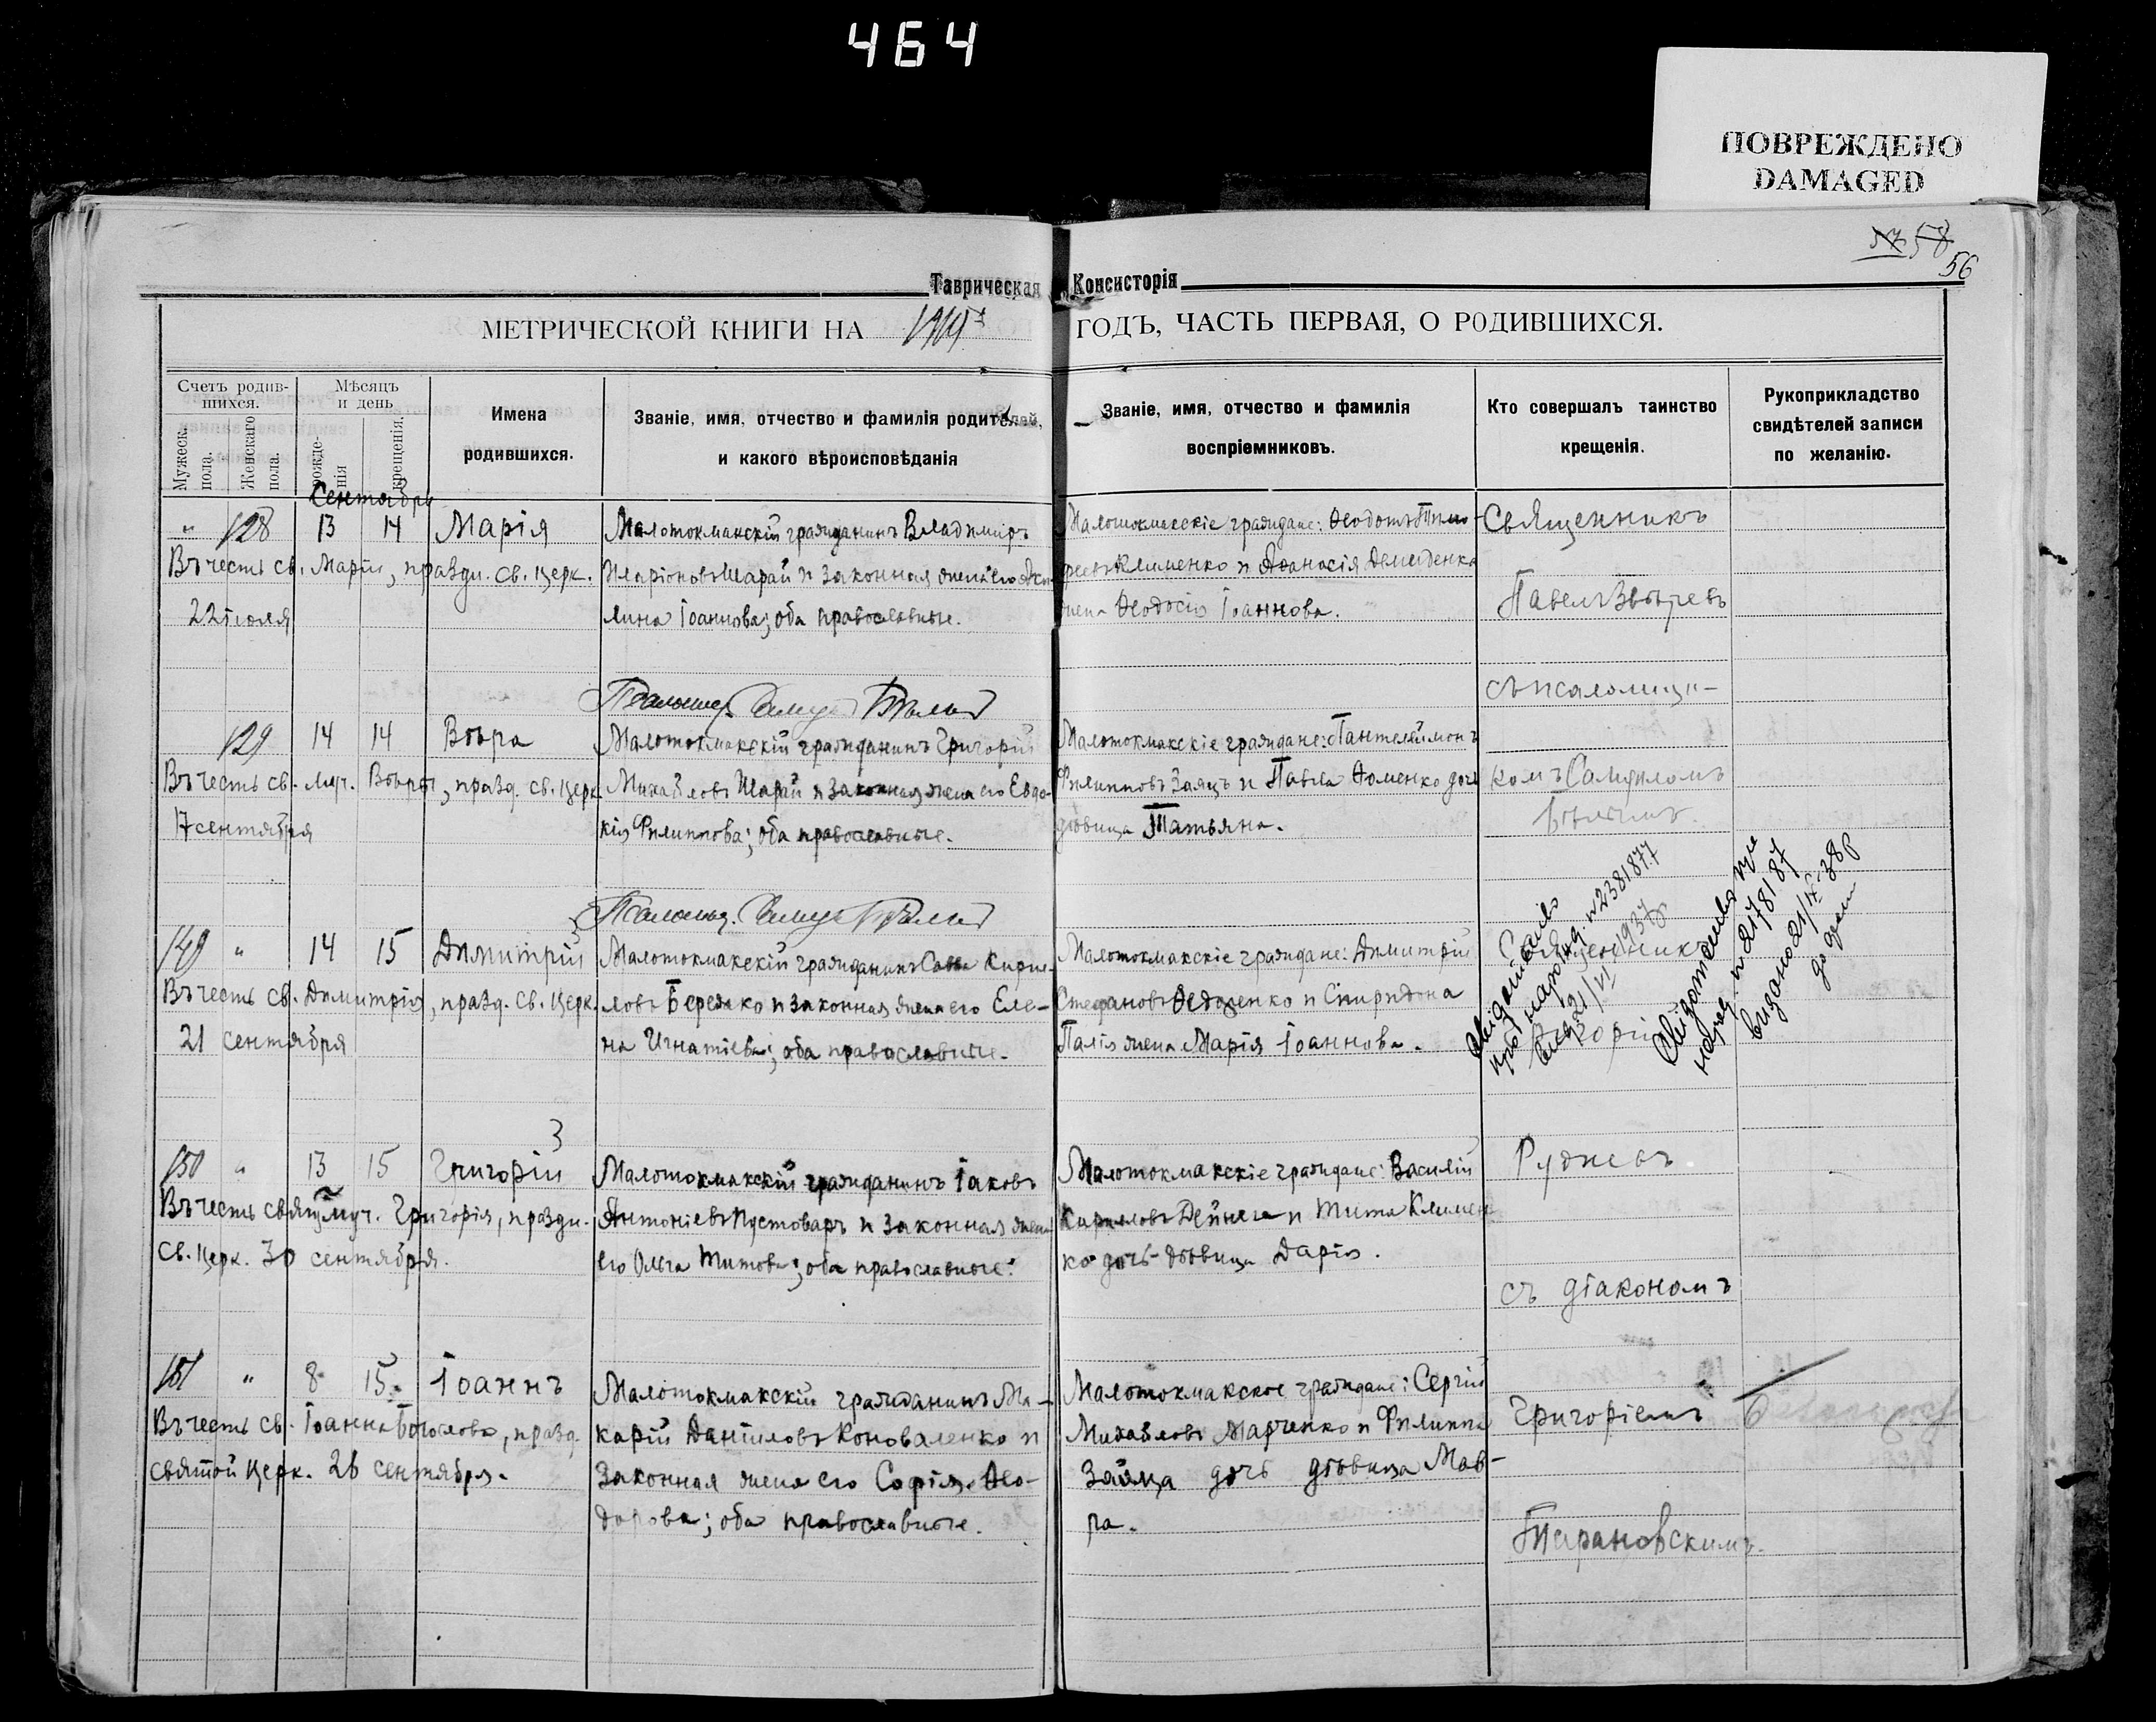 464
ПОВРЕЖДЕНО
DAMAGED
58
56
Таврическая Консисторія
МЕТРИЧЕСКОЙ КНИГИ НА ГОДЪ, ЧАСТЬ ПЕРВАЯ, О РОДИВШИХСЯ.
Счетъ родив-
шихся.
Мужеск.
пола.
Женскаго
пола.
Мѣсяцъ
и день
рожде-
нія
крещенія.
Имена
родившихся.
Званіе, имя, отчество и фамилія родителей,
и какого вѣроисповѣданія
Званіе, имя, отчество и фамилія
воспріемниковъ.
Кто совершалъ таинство
крещенія.
Рукоприкладство
свидѣтелей записи
по желанію.
Сентябрь
" 128 13 14 Марія
Въ честь св. Маріи, праздн. св. церк.
22 іюля
Малотокмакскій гражданинъ Владимиръ
Иларіоновъ Шарай и законная жена его
лина Іоаннова; оба православные.
Малотокмакскіе граждане: Ѳеодотъ Тимо-
феевъ Клименко и Аѳанасія Демиденка
жена Ѳеодосія Іоаннова.
Священникъ
Павелъ Звѣревъ
съ псаломщи-
комъ Самуиломъ
129 14 14 Вѣра
Въ честь св. муч. Вѣры, празд. св. церк.
17 сентября
Малотокмакскій гражданинъ Григорій
Михайловъ Шарай и законная жена его Евдо-
кія Филиппова; оба православные.
Малотокмакскіе граждане: Пантелеймонъ
Филипповъ Заяцъ и Павла Фоменко дочь
дѣвица Татьяна.
149 " 14 15 Димитрій
Въ честь св. Димитрія, празд. св. церк.
21 сентября
Малотокмакскій гражданинъ Савва Кирил-
ловъ Бережко и законная жена его Еле-
на Игнатіева; оба православные.
Малотокмакскіе граждане: Димитрій
Стефановъ и Спиридона
Палія жена Марія Іоаннова.
Священникъ
про народ. №2381877
21/VI 1937р
№ 2178187
видано 21/IX-38р
150 " 13 15 Григорій
Въ честь священмуч. Григорія, праздн.
св. церк. 30 сентября.
Малотокмакскій гражданинъ Іаковъ
Антоніевъ Пустоваръ и законная жена
его Ольга Титова; оба православные.
Малотокмакскіе граждане: Василій
Кирилловъ Дейнега и Тита Климен
ко дочь дѣвица Дарія.
Рудневъ
съ діакономъ
151 " 8 15 Іоаннъ
Въ честь св. Іоанна Богослова, празд.
святой церк. 26 сентября.
Малотокмакскій гражданинъ Ма-
карій Даніиловъ Коноваленко и
законная жена его Софія Ѳео-
дорова; оба православные.
Малотокмакскіе граждане: Сергій
Михайловъ Марченко и Филиппа
Зайца дочь дѣвица Мав-
ра.
Григоріемъ
Тарановскимъ.